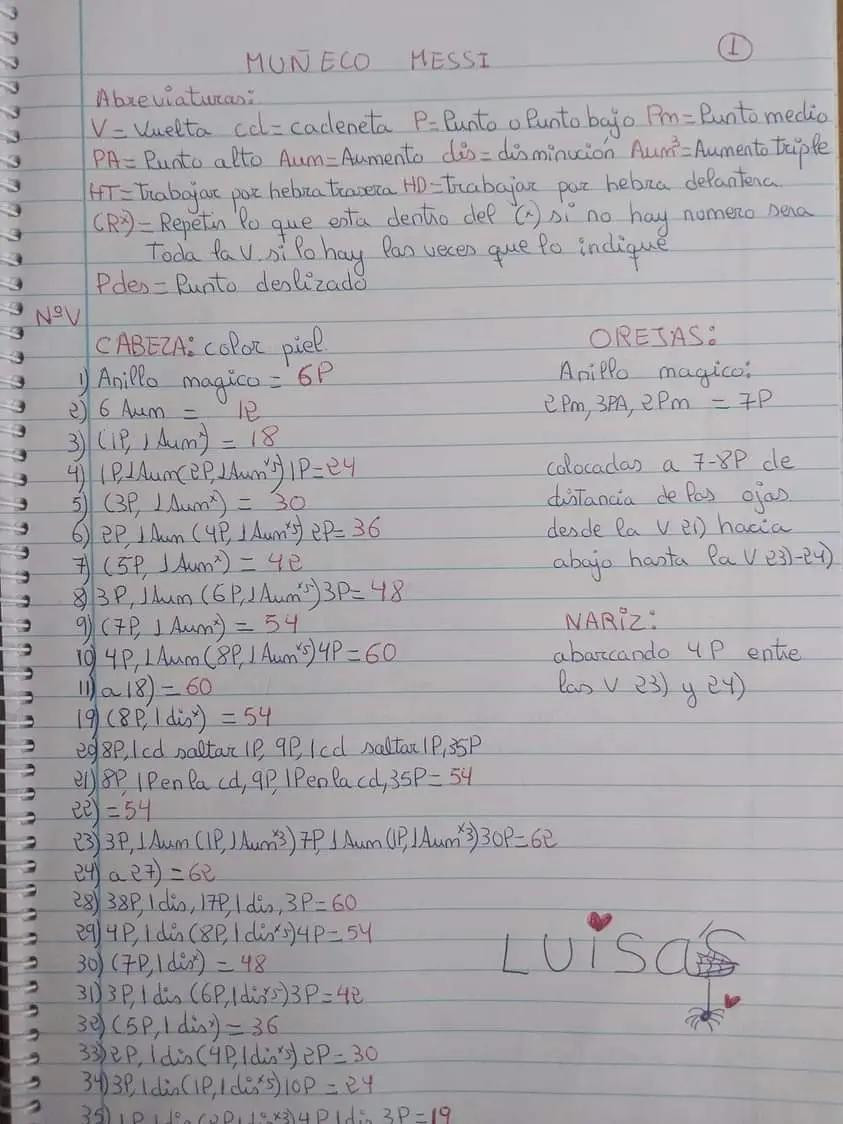 MUÑECO MESSI
1
Abreviaturas:
V = Vuelta cd = cadeneta P = Punto o Punto bajo Pm = Punto medio
PA = Punto alto Aum = Aumento dis = disminución Aum³ = Aumento triple
HT = trabajar por hebra trasera HD = trabajar por hebra delantera
(Rˣ) = Repetir lo que esta dentro del (x) si no hay numero sera
Toda la V. si lo hay las veces que lo indique
Pdes = Punto deslizado
NºV
CABEZA: color piel
1) Anillo magico = 6P
2) 6 Aum = 12
3) (1P, 1Aumˣ) = 18
4) 1P, 1Aum (2P, 1Aumˣ⁵) 1P = 24
5) (3P, 1Aumˣ) = 30
6) 2P, 1Aum (4P, 1Aumˣ⁵) 2P = 36
7) (5P, 1Aumˣ) = 42
8) 3P, 1Aum (6P, 1Aumˣ⁵) 3P = 48
9) (7P, 1Aumˣ) = 54
10) 4P, 1Aum (8P, 1Aumˣ⁵) 4P = 60
11) a 18) = 60
19) (8P, 1disˣ) = 54
20) 8P, 1cd saltar 1P, 9P, 1cd saltar 1P, 35P
21) 8P, 1P en la cd, 9P, 1P en la cd, 35P = 54
22) = 54
23) 3P, 1Aum (1P, 1Aumˣ³) 7P, 1Aum (1P, 1Aumˣ³) 30P = 62
24) a 27) = 62
28) 38P, 1dis, 17P, 1dis, 3P = 60
29) 4P, 1dis (8P, 1disˣ⁵) 4P = 54
30) (7P, 1disˣ) = 48
31) 3P, 1dis (6P, 1disˣ⁵) 3P = 42
32) (5P, 1disˣ) = 36
33) 2P, 1dis (4P, 1disˣ⁵) 2P = 30
34) 3P, 1dis (1P, 1disˣ⁵) 10P = 24
35) 1P, 1dis (2P, 1disˣ³) 4P, 1dis, 3P = 19
OREJAS:
Anillo magico:
2Pm, 3PA, 2Pm = 7P
colocadas a 7-8P de
distancia de los ojos
desde la V 21) hacia
abajo hasta la V 23)-24)
NARIZ:
abarcando 4P entre
las V 23) y 24)
LUISA'S